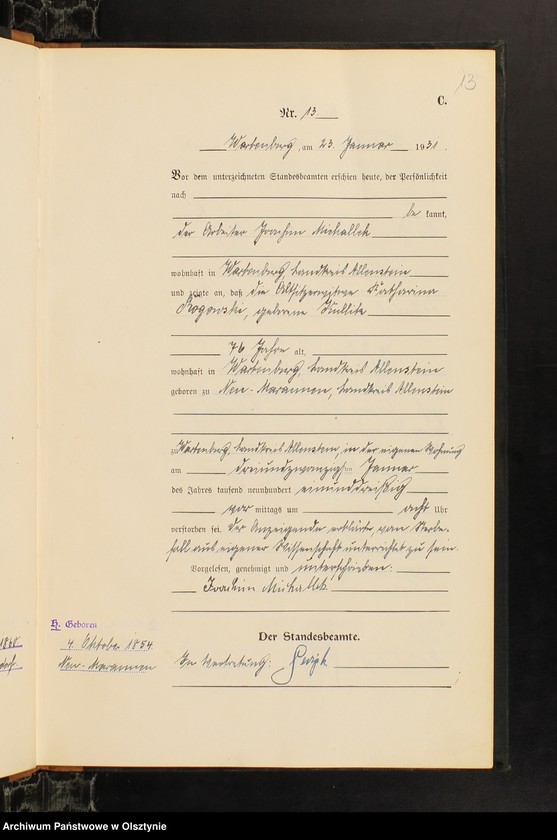 13
C.
Nr. 13
Wartenburg, am 23. Januar 1931.
Vor dem unterzeichneten Standesbeamten erschien heute, der Persönlichkeit
nach
be kannt,
der Arbeiter Joachim Michallek
wohnhaft in Wartenburg, Landkreis Allenstein
und zeigte an, daß die Altsitzerwitwe Katharina
Rogowski, geborene Kullik
76 Jahre alt,
wohnhaft in Wartenburg, Landkreis Allenstein
geboren zu Neu-Maraunen, Landkreis Allenstein
zu Wartenburg, Landkreis Allenstein, in der eigenen Wohnung
am dreiundzwanzigsten Januar
des Jahres tausend neunhundert einunddreißig
vor mittags um acht Uhr
verstorben sei. Der Anzeigende erklärte, vom Sterbe-
fall aus eigener Wissenschaft unterrichtet zu sein.
Vorgelesen, genehmigt und unterschrieben:
Joachim Michallek
H. Geboren
4. Oktober 1854
Neu-Maraunen
Der Standesbeamte.
In Vertretung:
Archiwum Państwowe w Olsztynie